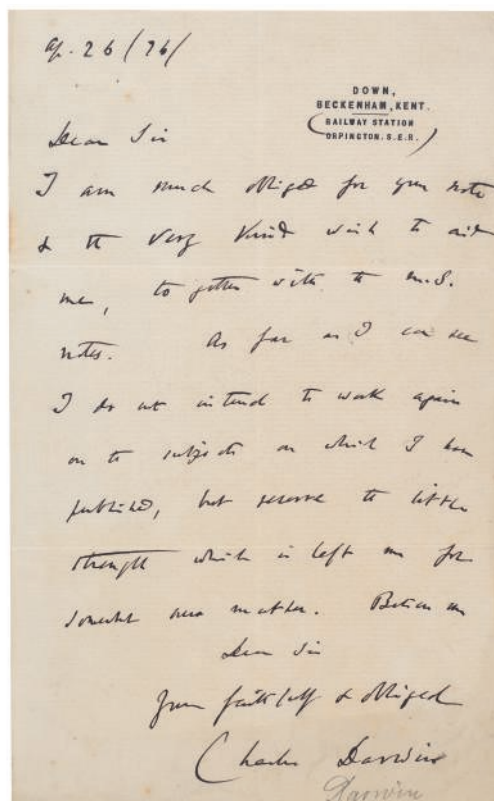 Ap. 26 / 76 /
DOWN,
BECKENHAM, KENT.
RAILWAY STATION
ORPINGTON. S.E.R.
Dear Sir
I am much obliged for your note
& the very kind wish to aid
me, together with the M.S.
notes. As far as I can see
I do not intend to work again
on the subjects on which I have
published, but reserve the little
strength which is left me for
new matter. Believe me
Dear Sir
Yours faithfully & obliged
Charles Darwin
Darwin